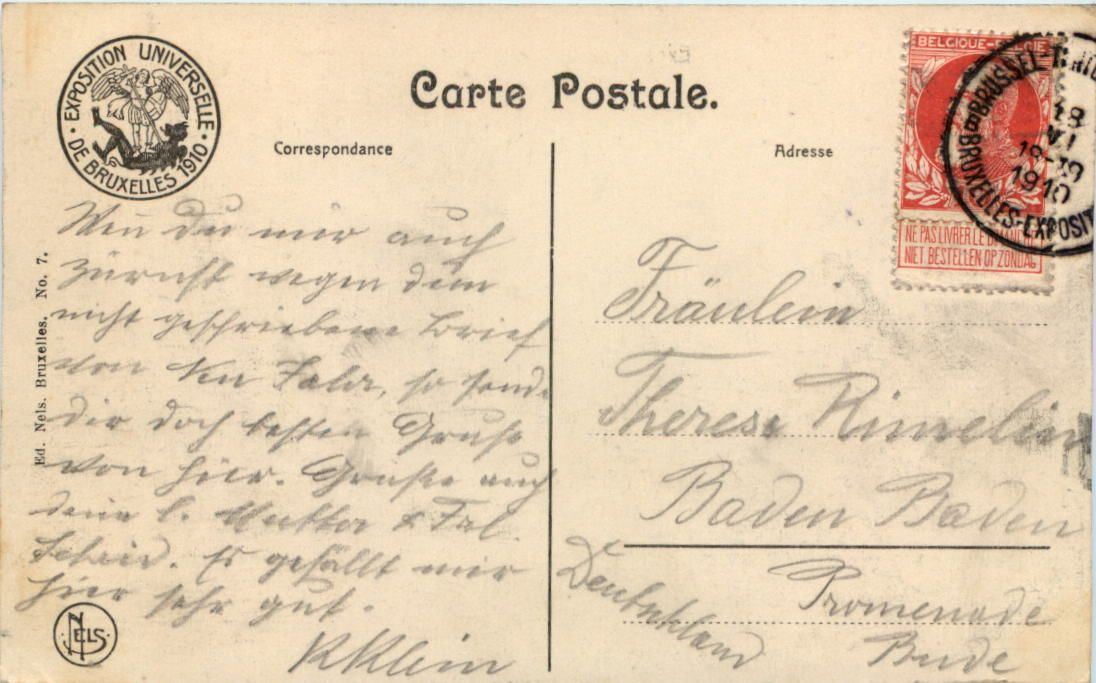 EXPOSITION UNIVERSELLE
DE BRUXELLES 1910
Carte Postale.
Correspondance
Adresse
BELGIQUE-BELGIË
NE PAS LIVRER LE DIMANCHE
NIET BESTELLEN OP ZONDAG
BRUSSEL-
18
VI
18-19
1910
BRUXELLES-EXPOSIT
Ed. Nels. Bruxelles. No. 7.
du mir auch
zürnst wegen dem
nicht geschriebene Brief
von so sende
dir doch besten Gruß
von hier. Grüße auch
deine l. Mutter & Frl.
Es gefällt mir
hier sehr gut.
KKlein
NELS
Fräulein
Therese Rimelin
Baden Baden
Promenade
Bude
Deutschland